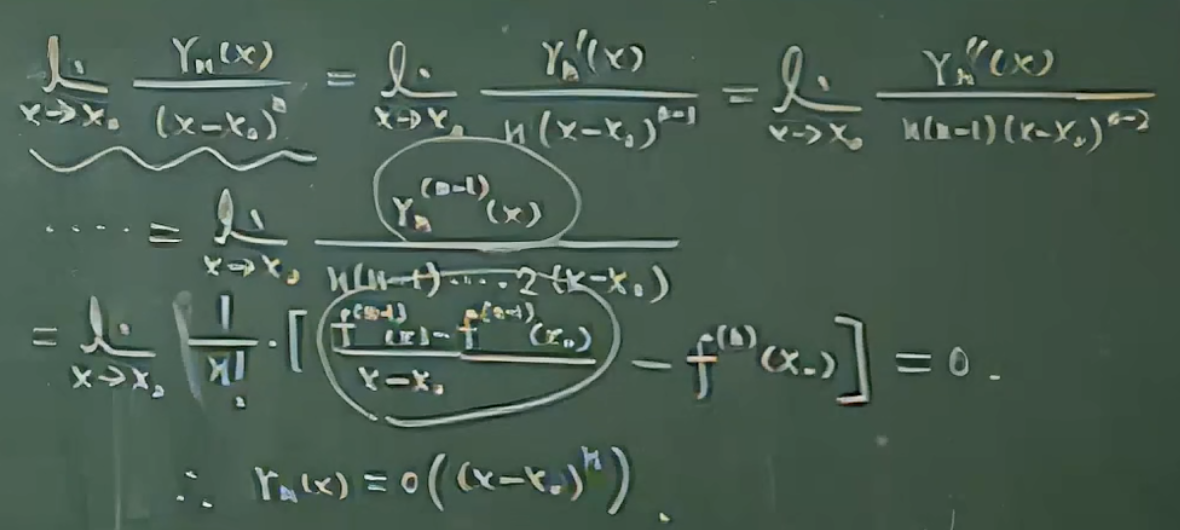 lim_{x→x₀} r_n(x)/(x-x₀)^n = lim_{x→x₀} r_n'(x)/n(x-x₀)^{n-1} = lim_{x→x₀} r_n''(x)/n(n-1)(x-x₀)^{n-2}
····· = lim_{x→x₀} r_n^{(n-1)}(x)/n(n-1)·····2(x-x₀)
= lim_{x→x₀} 1/n! · [ (f^{(n-1)}(x) - f^{(n-1)}(x₀))/(x-x₀) - f^{(n)}(x₀) ] = 0.
∴ r_n(x) = o((x-x₀)^n).